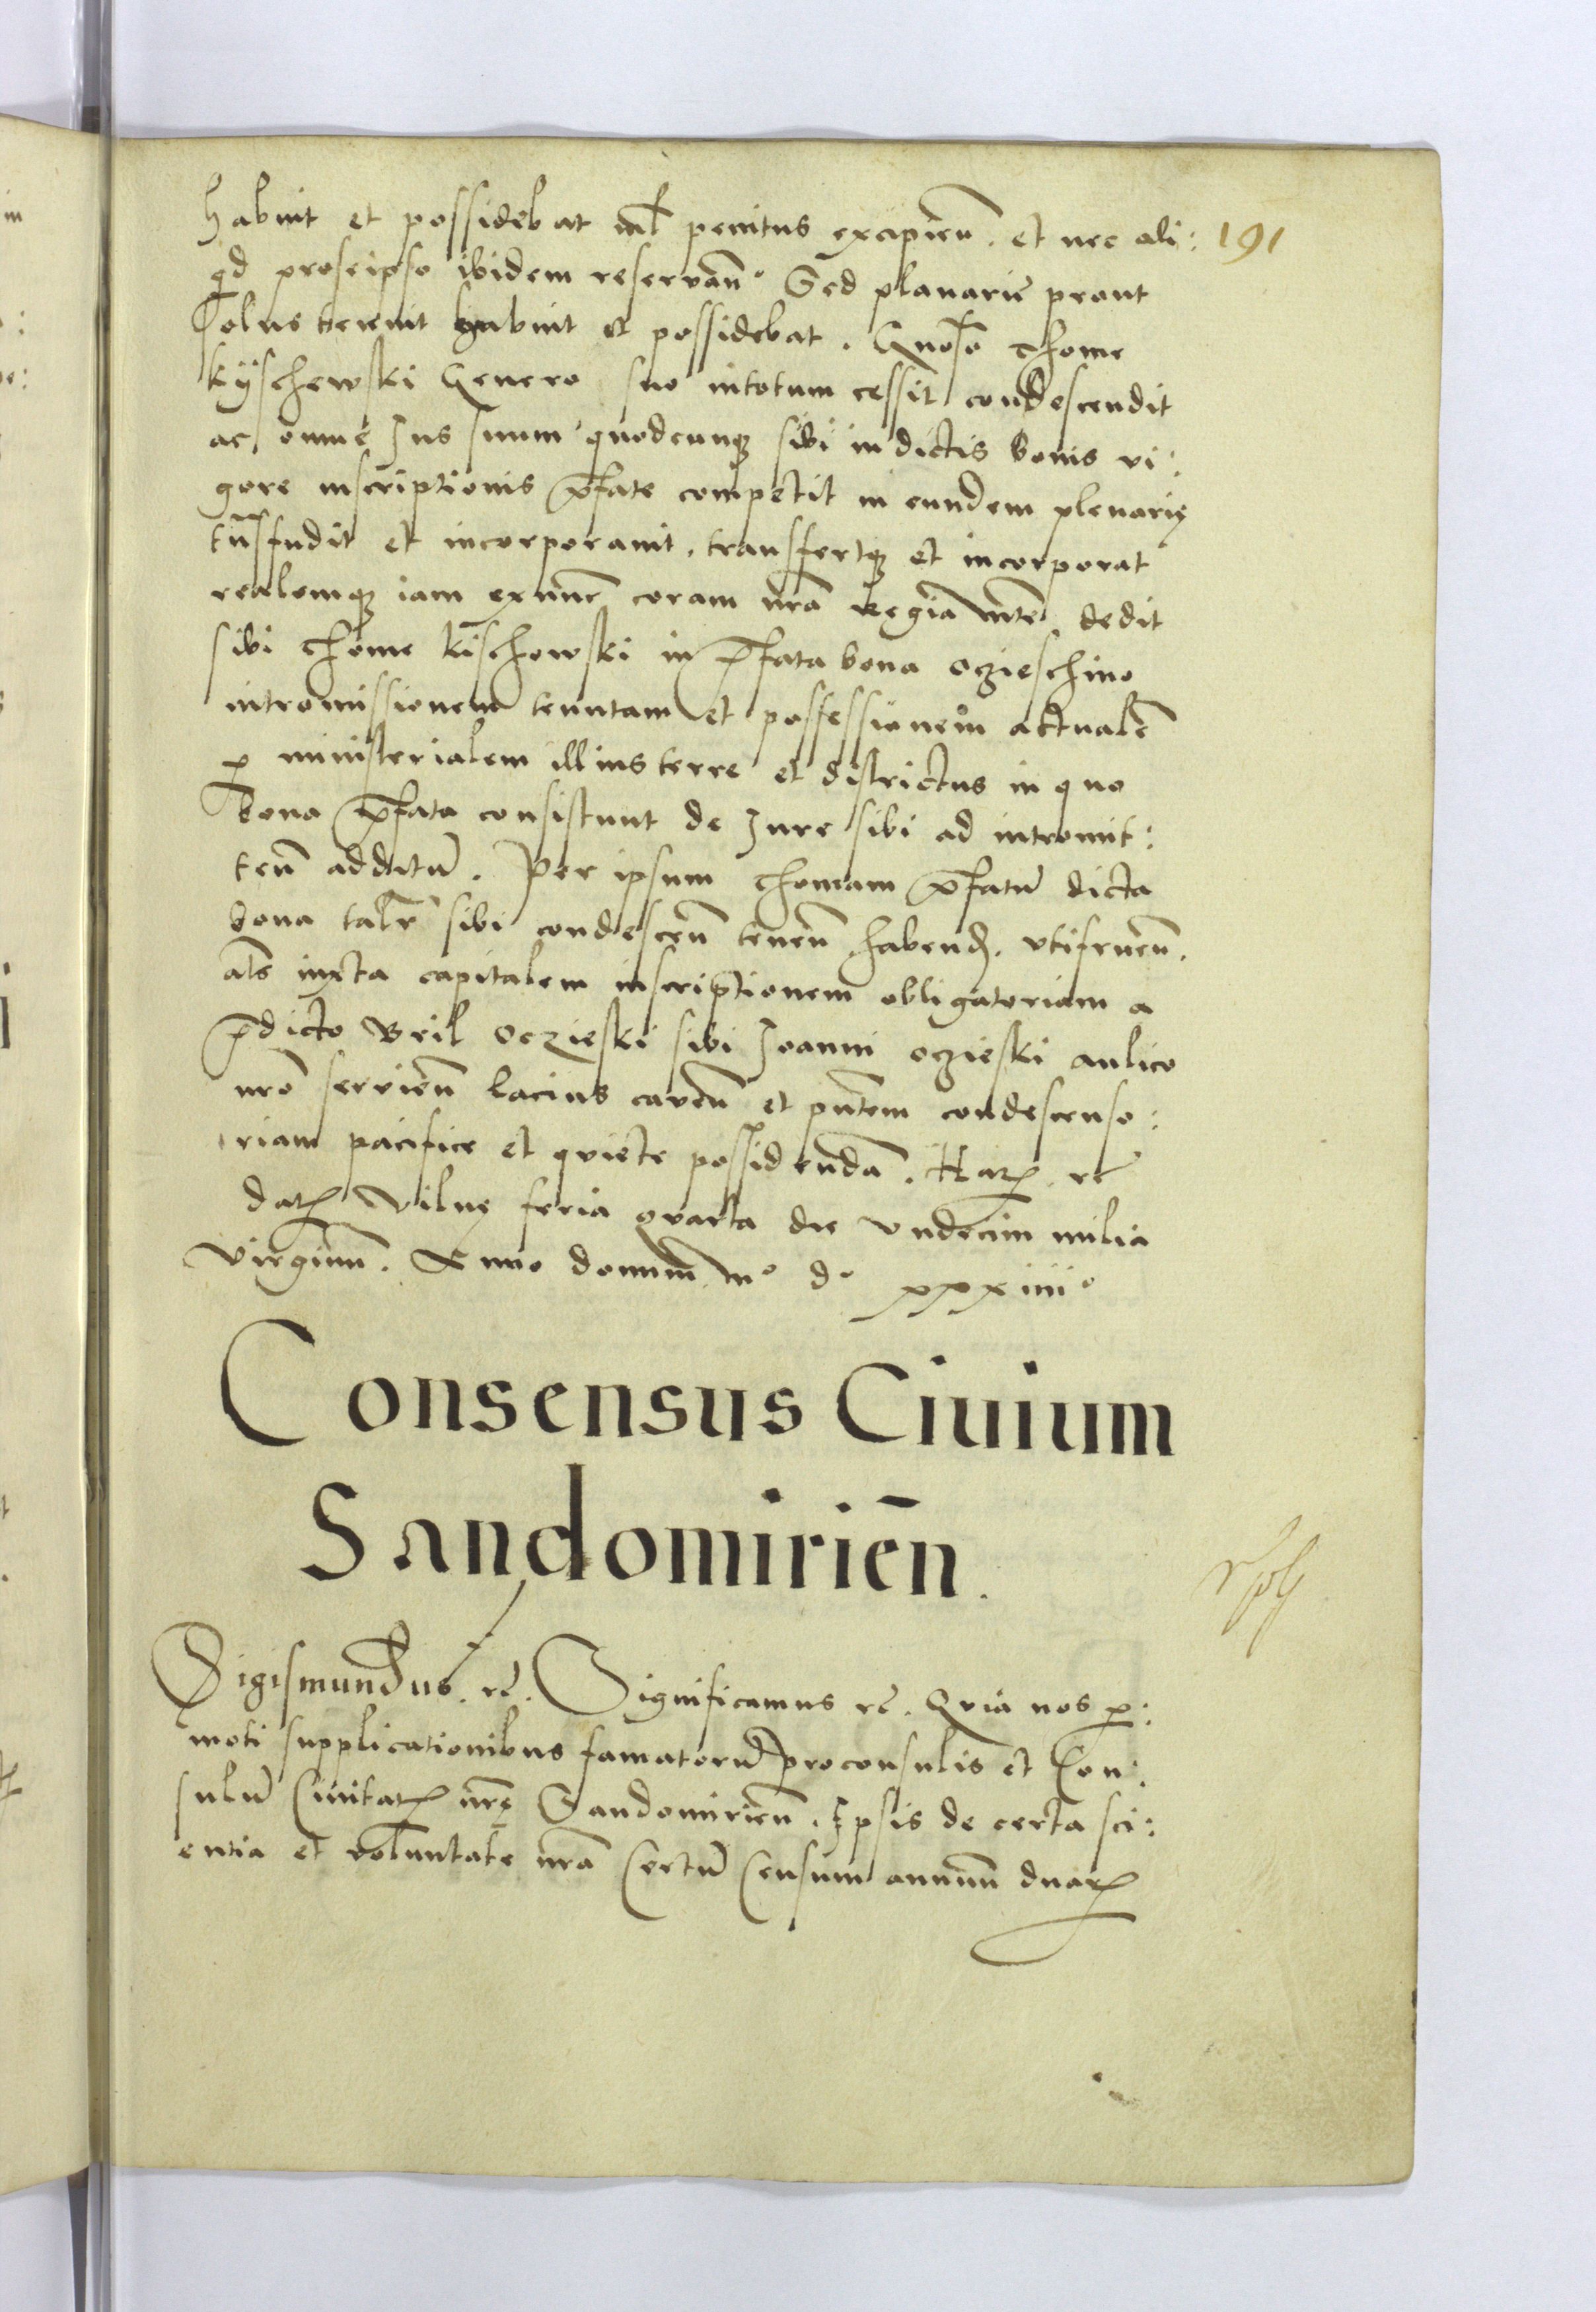 habuit et possidebat nil penitus excipien̄. et nec ali: 191
qd proseipso ibidem reservan̄. Sed plenarie prout
solus tenuit habuit et possidebat. Gnōso Thome
Kÿschewski Genero suo intotum cessit condescendit
ac omne Jus suum quodcunqꝫ sibi in dictis bonis vi:
gore inscriptionis p̄fate competit in eundem plenarie
trāsfudit et incorporavit. transfertqꝫ et incorporat
realemqꝫ iam exnunc coram nrā Regia mte dedit
sibi Thome Kischowski in p̄fata bona oczieschino
intromissionem tenutam et possessionem actualē
ꝑ ministerialem illius terre et districtus in quo
bona p̄fata consistunt de Jure sibi ad intromit:
ten̄ additū. Per ipsum Thomam p̄fatū dicta
bona talr̄ sibi condescen̄ tenen̄ habend. vtifruen̄.
als̄ iuxta capitalem inscriptionem obligatoriam a
p̄dicto Oczieski sibi Joanni oczieski aulico
nr̄o servien̄ lacius caven̄ et pn̄tem condescenso:
riam pacifice et quiete possidendā. Harꝝ rc̄
datꝝ Vilnę feria quarta die vndecim milia
Virginum. Anno domini mº dº xxxiiiiº
Consensus Ciuium
Sandomirien̄.
Sigismundus. rc̄. Significamus rc̄. Quia nos ꝑ:
moti supplicationibus famatorū proconsulis et Con:
sulū Civitatꝭ nrę Sandomirien̄. Ipsis de certa sci:
entia et voluntate nrā Certū Censum annuum duarꝝ